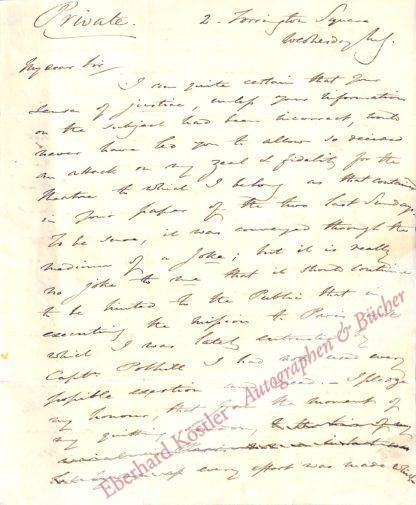 Private.
2. Torrington Square
Wednesday
My dear Sir
I am quite certain that your
sense of justice, unless your information
on the subject had been incorrect, would
never have led you to allow so decided
an attack on my zeal & fidelity for the
theatre to which I belong as that contained
in your paper of the two last Sundays
To be sure, it was conveyed through the
medium of a joke; but it is really
no joke to me that it should continue
to be hinted to the Public that in
executing the mission to Paris
which I was lately entrusted by
Captn Polhill I had not used every
possible exertion and speed. I pledge
my honour, that from the moment of
my quitting London,
every effort was made which
Eberhard Köstler - Autographen & Bücher